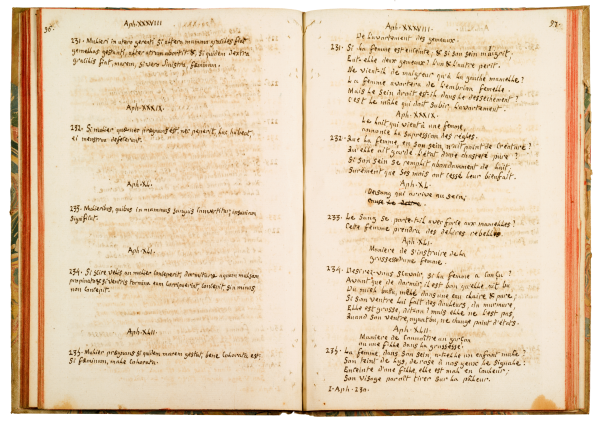 36.
Aph. XXXVIII
231. Mulieri in utero gerenti si altera mamma gracilis fiat
gemellos gestanti, alter utrum abortit. & si quidem dextra
gracilis fiat, marem, si vero sinistra, feminam.
Aph. XXXIX.
232. Si mulier quae nec praegnans est, nec peperit, lac habeat,
ei menstrua defecerunt.
Aph. XL.
233. Mulieribus, quibus in mammas sanguis convertitur, insaniam
significat.
Aph. XLI.
234. Si scire velis an mulier conceperit, dormiturae aquam mulsam
potui
& si ventris tormina eam concipit, si minus,
non concepit.
Aph. XLII.
235. Mulier praegnans si quidem marem gestat, bene colorata est:
Si feminam, male colorata.
37.
Aph. XXXVIII.
De l'avortement des gemeaux.
231. Si la femme est enceinte, & si son sein maigrit,
Eut-elle deux gemeaux? l'un & l'autre perit.
Ne vient-il de maigreur qu'à la gauche mamelle?
La femme avortera de l'embrion femelle.
Mais le sein droit est-il dans le dessechement?
C'est le mâle qui doit subir l'avortement.
Aph. XXXIX.
Le lait qui vient à une femme,
annonce la supression des règles.
232. Que la femme, en son sein, n'ait point de créature?
Qu'elle ait gardé l'etat d'une chasteté pure?
Si son sein se remplit abondamment de lait,
Surement que ses mois ont cessé leur bienfait.
Aph. XL.
Du sang qui arrive au sein,
233. Le Sang se porte-t-il avec force aux mamelles?
Cette femme prendra des delires rebelles.
Aph. XLI.
Maniere de s'instruire de la
grossesse d'une femme.
234. Desirez-vous sçavoir, si la femme a conçu?
Avant que de dormir, il est bon qu'elle ait bu
Du miel mêlé dans une eau claire & pure,
Si son Ventre lui fait des douleurs, du murmure,
Elle est grosse, mais elle ne l'est pas,
Quand son ventre, ne change point d'etats.
Aph. XLII.
Maniere de connaître un garçon
ou une fille dans la grossesse.
235. La femme, dans son sein, a-t-elle un enfant mâle?
Son teint de Lys, de rose à nos yeux se signale:
Enceinte d'une fille, elle est mal en couleur:
Son Visage paroît tirer sur la pâleur.
1. Aph. 230.